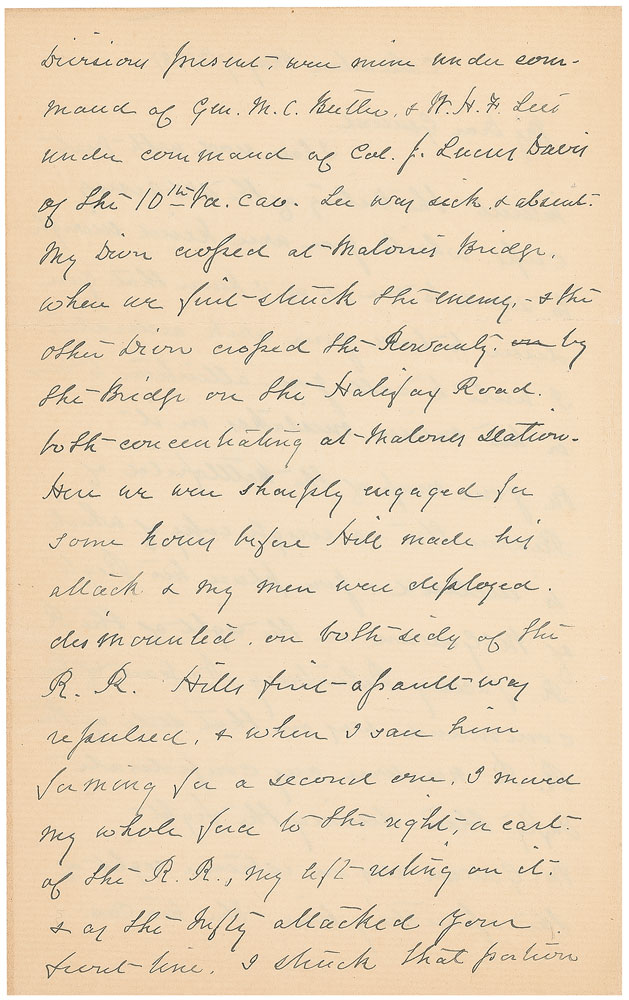 Divisions present, were mine under com-
mand of Gen. M. C. Butler, & W. H. F. Lee's
under command of Col. J. Lucius Davis
of the 10th Va. Cav. Lee was sick & absent.
My Divn crossed at Malone's Bridge,
where we first struck the enemy, & the
other Divn crossed the Rowanty, on by
the Bridge on the Halifax Road.
both concentrating at Malones Station.
Here we were sharply engaged for
some hours before Hill made his
attack & my men were deployed.
dismounted, on both sides of the
R. R. Hills first assault was
repulsed, & when I saw him
forming for a second one, I moved
my whole force to the right, or east.
of the R. R., my left resting on it.
& as the Infty attacked your
front line, I struck that portion